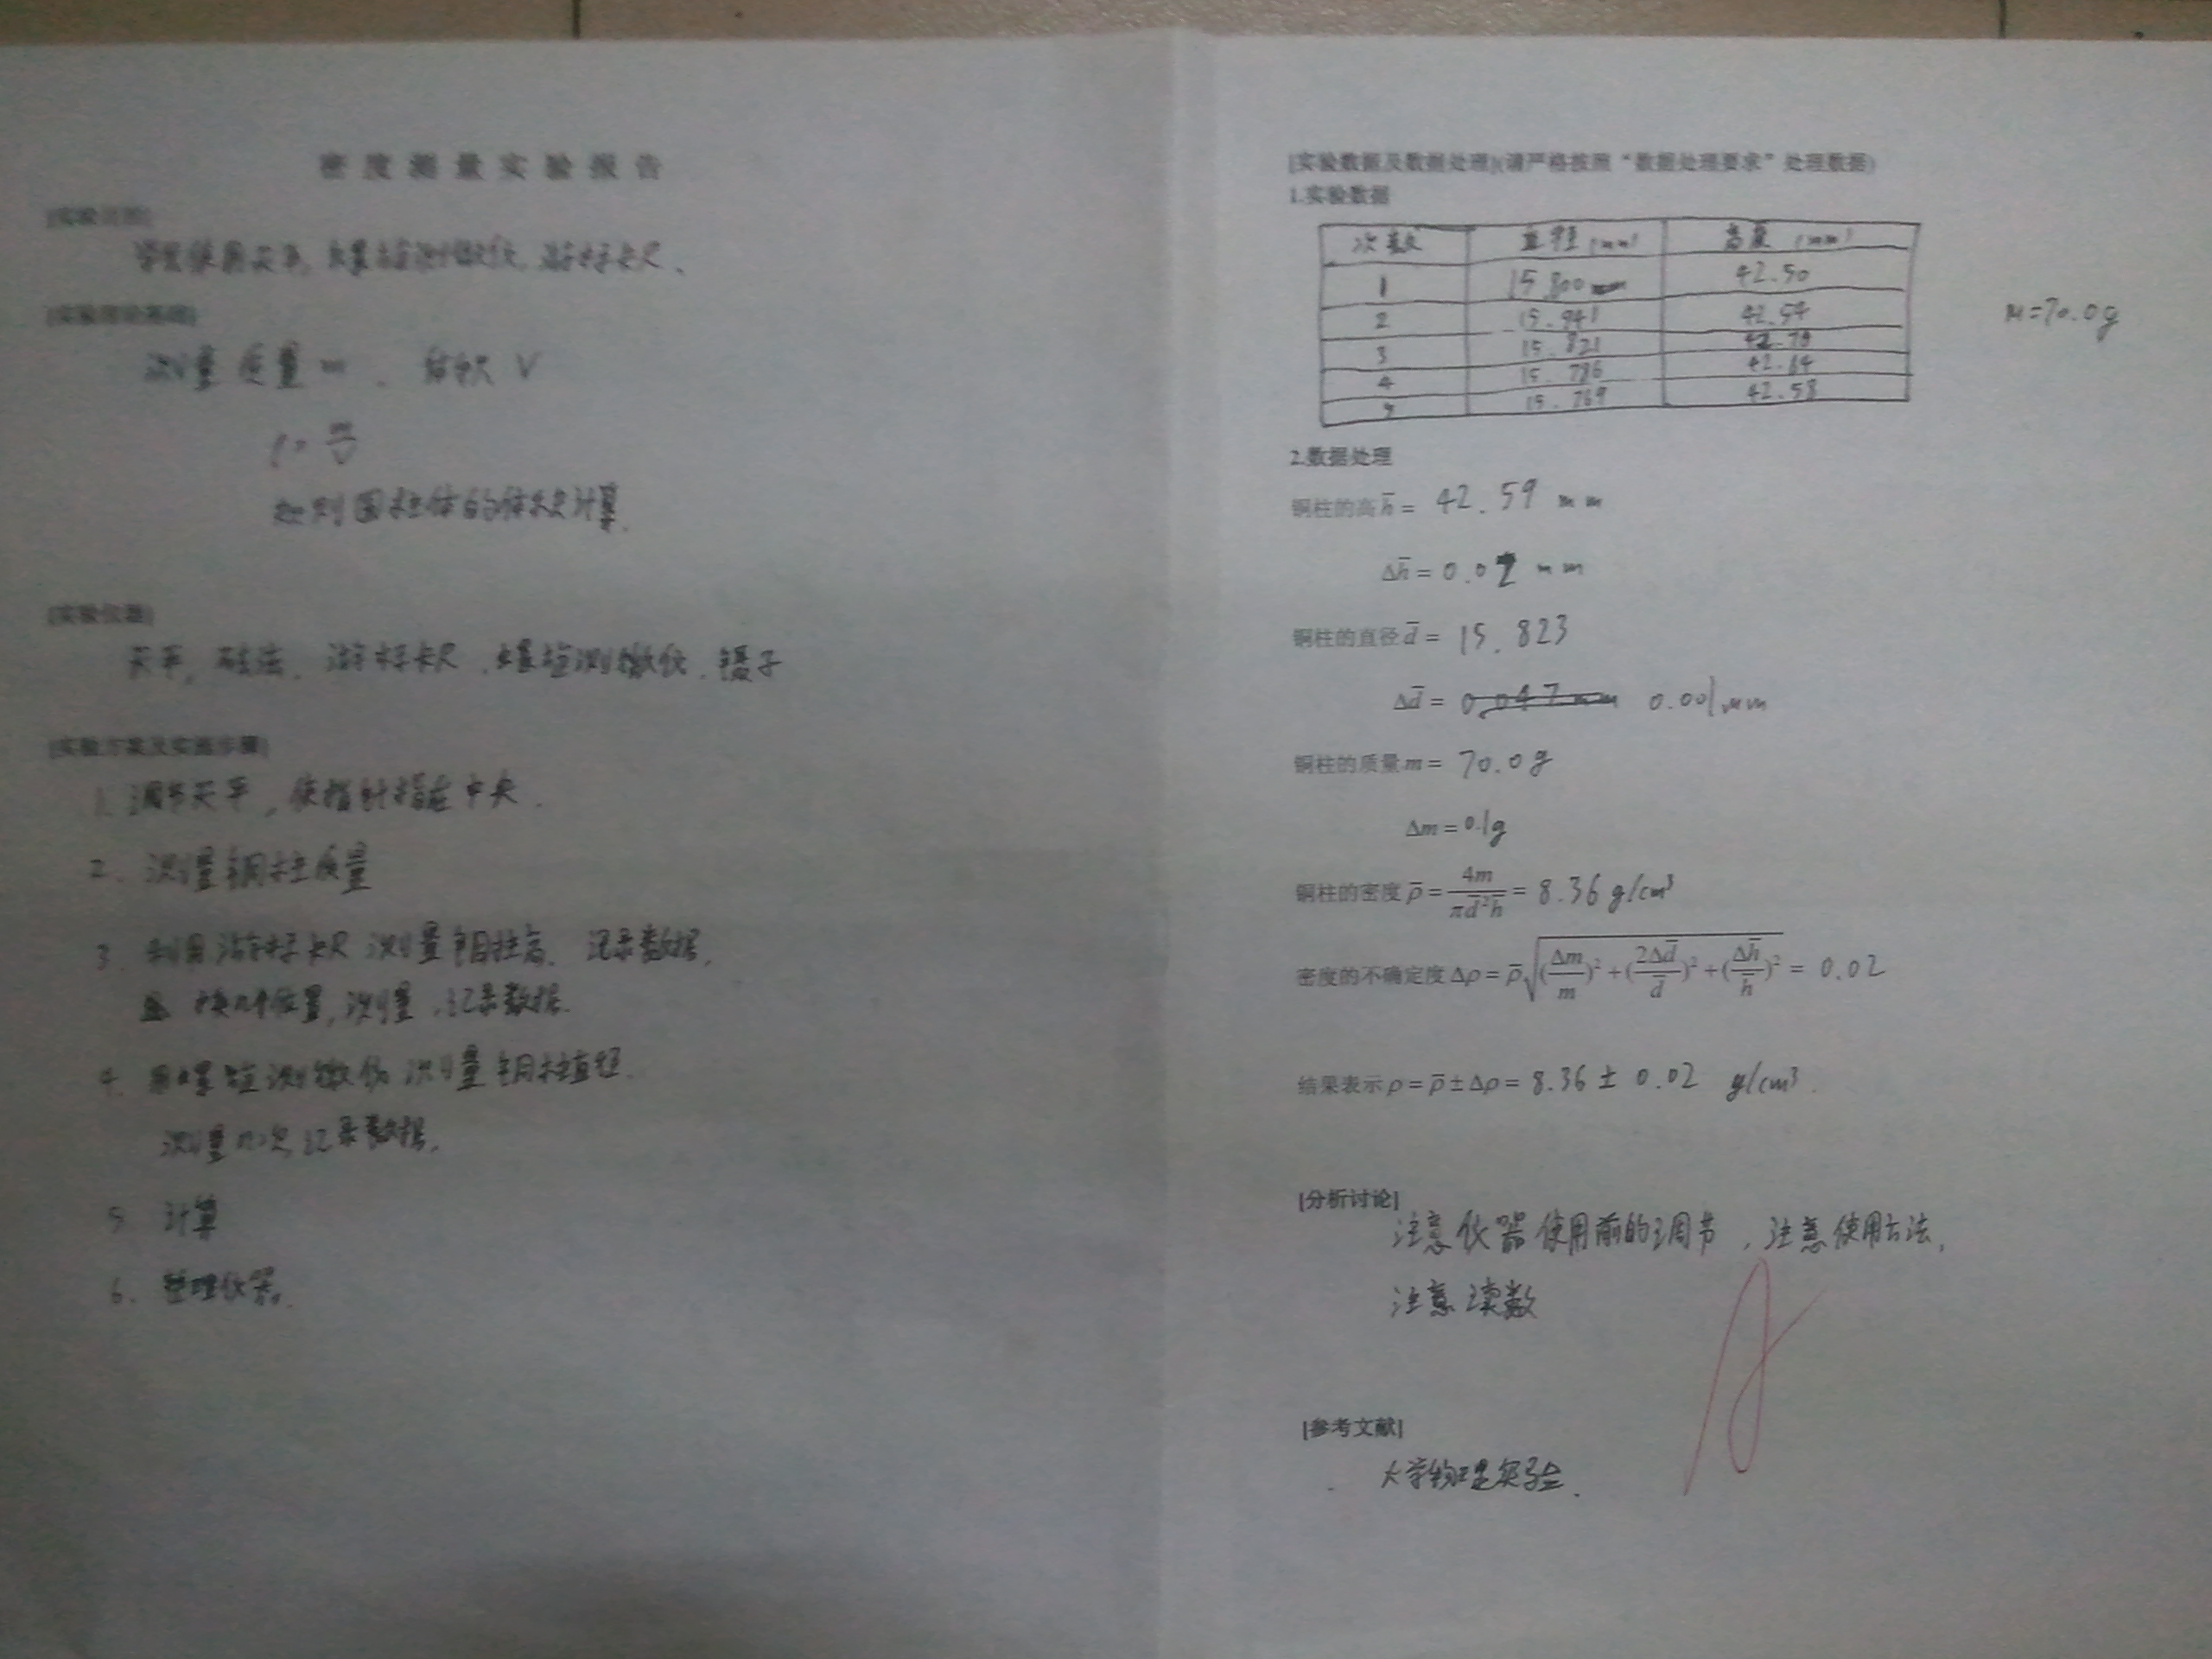 密度测量实验报告
[实验目的]
学习使用天平,螺旋测微仪,游标卡尺、
[实验理论基础]
测量质量m、体积V
ρ=m/V
规则圆柱体的体积计算.
[实验仪器]
天平,砝法、游标卡尺、螺旋测微仪、镊子
[实验方案及实施步骤]
1.调节天平,使指针指在中央.
2.测量铜柱质量
3.利用游标卡尺测量铜柱高、记录数据,
换几个位置,测量,记录数据.
4.用螺旋测微仪测量铜柱直径.
测量几次,记录数据,
5 计算
6.整理仪器.
[实验数据及数据处理](请严格按照“数据处理要求”处理数据)
1.实验数据
次数 直径(mm) 高度(mm)
1 15.800 42.50
2 15.941 42.54
3 15.821
4 15.786 42.64
5 15.769 42.58
m=70.0g
2.数据处理
铜柱的高h̄= 42.59 mm
Δh̄= 0.02 mm
铜柱的直径d̄= 15.823
Δd̄= 0.047mm 0.001mm
铜柱的质量m= 70.0g
Δm=0.1g
铜柱的密度ρ̄=4m/(πd̄²h̄)= 8.36 g/cm³
密度的不确定度Δρ=ρ̄√((Δm/m)²+(2Δd̄/d̄)²+(Δh̄/h̄)²)= 0.02
结果表示ρ=ρ̄±Δρ= 8.36 ± 0.02 g/cm³.
[分析讨论]
注意仪器使用前的调节,注意使用方法,
注意读数
[参考文献]
大学物理实验.